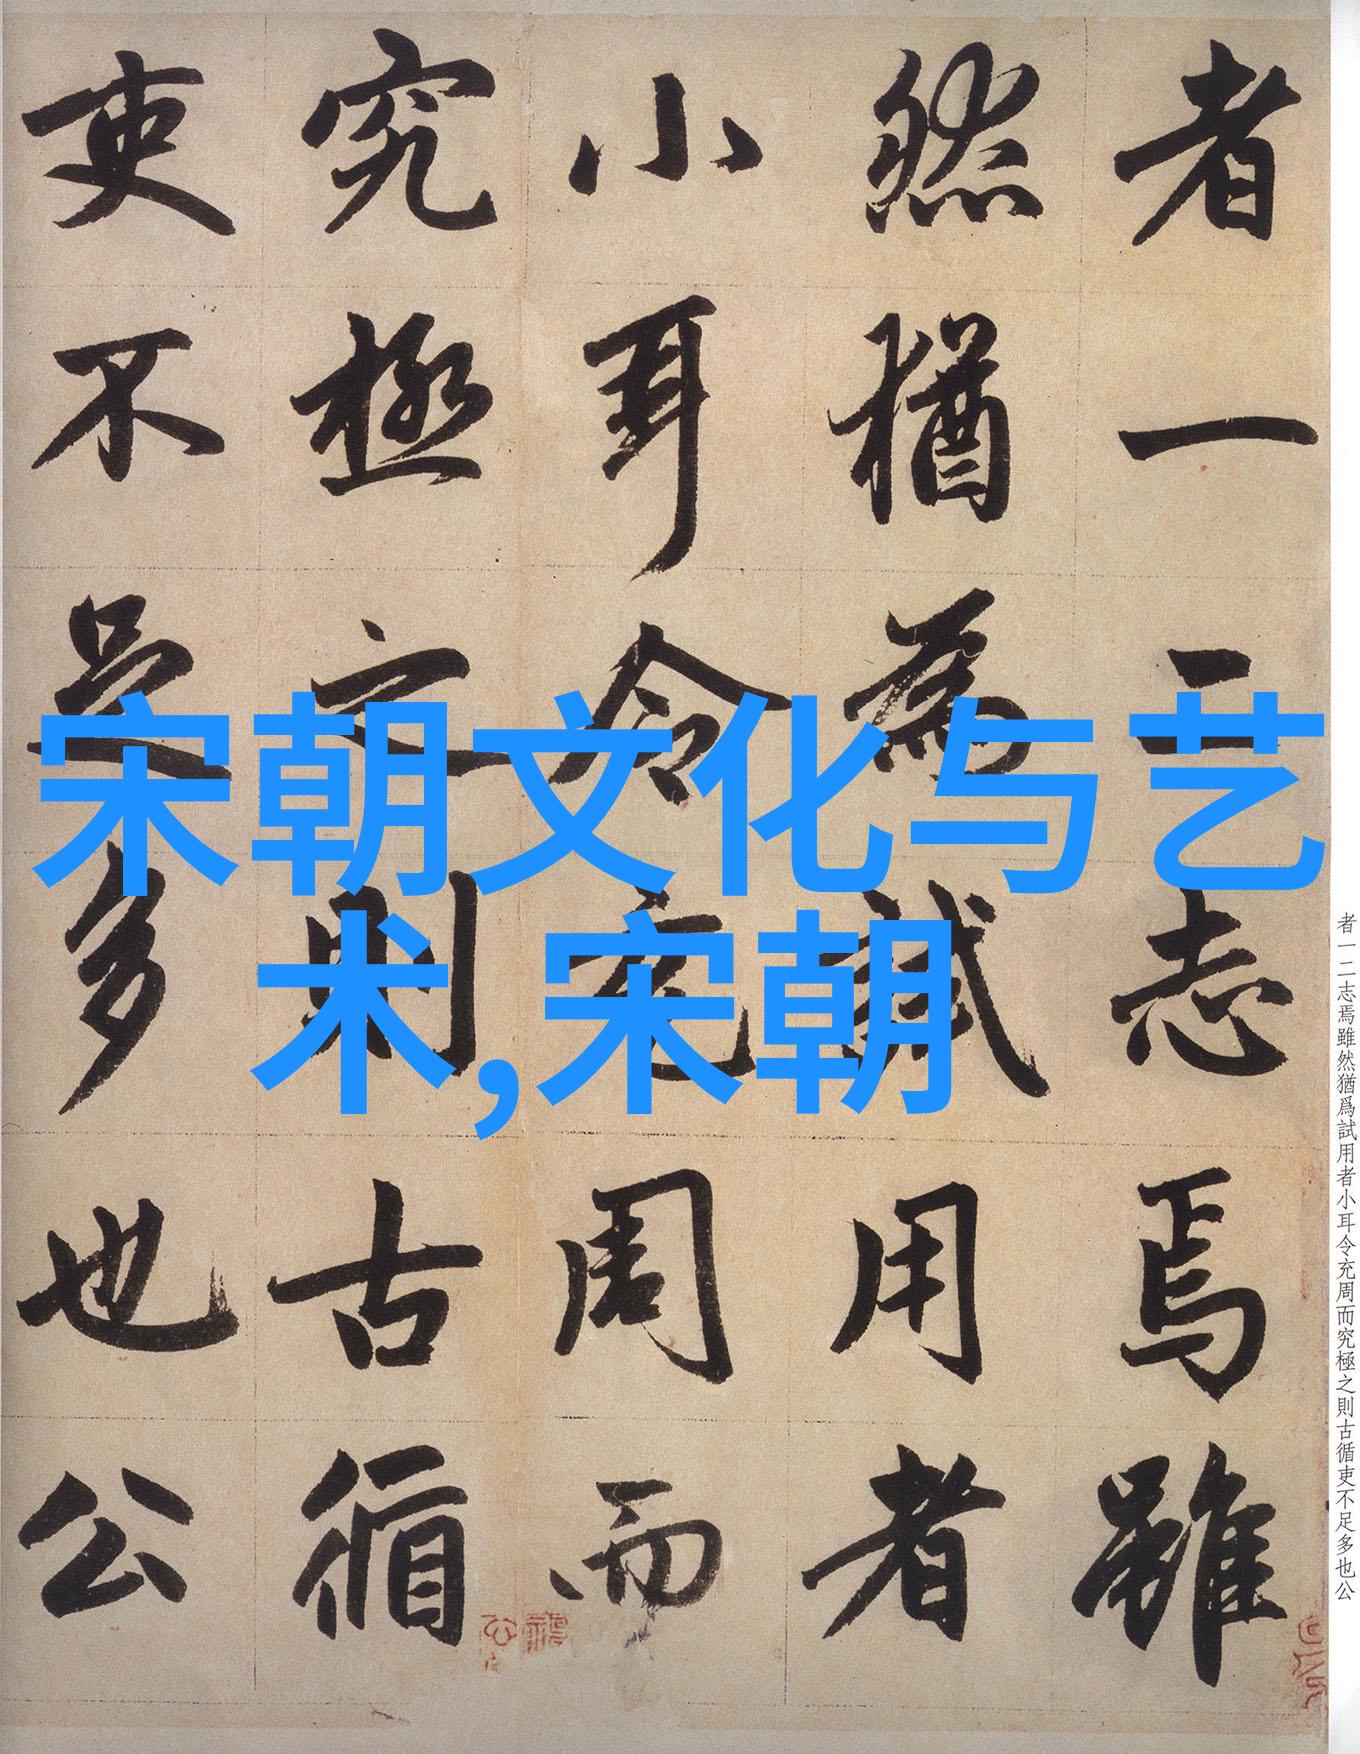 宋朝文化与艺
术,宋朝
者一二志焉雖
然猶為試用者
小耳令充周而
究極之則古循
吏不足多也公
者一二志焉雖然猶爲試用者小耳令充周而究極之則古循吏不足多也公